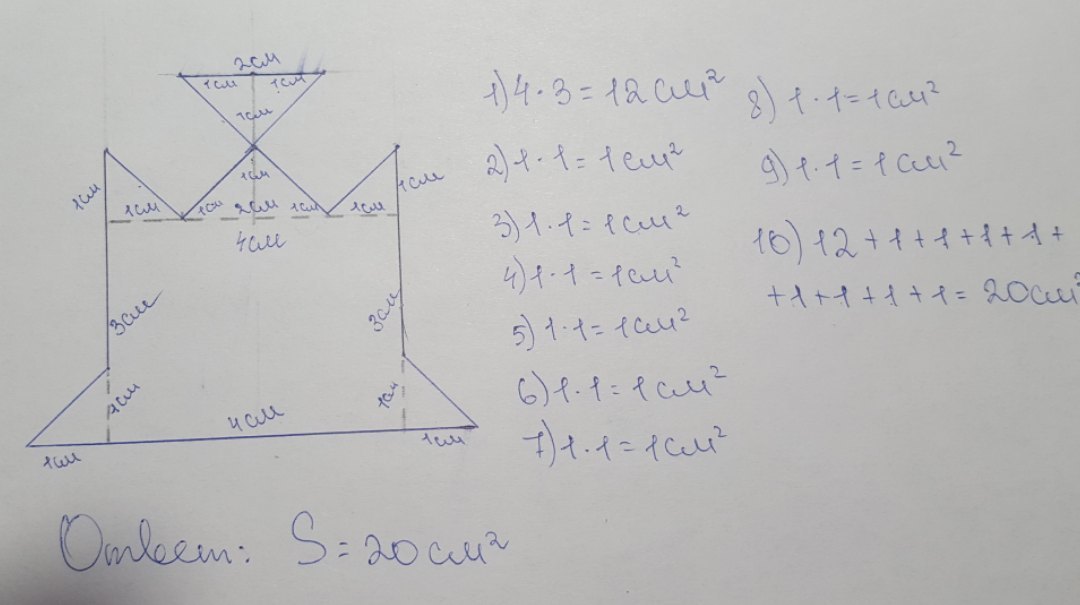 2см
1см 1см
1см
1см
1см
1см
1см 1см 2см 1см 1см
4см
3см
3см
1см
1см
4см
1см
1см
1) 4 · 3 = 12 см²
2) 1 · 1 = 1 см²
3) 1 · 1 = 1 см²
4) 1 · 1 = 1 см²
5) 1 · 1 = 1 см²
6) 1 · 1 = 1 см²
7) 1 · 1 = 1 см²
8) 1 · 1 = 1 см²
9) 1 · 1 = 1 см²
10) 12 + 1 + 1 + 1 + 1 +
+ 1 + 1 + 1 + 1 = 20 см²
Ответ: S = 20 см²